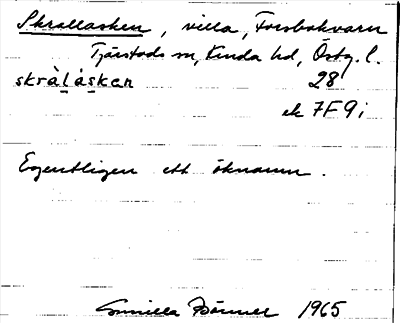 Skrallasken, villa, Forsbokvarn
Tjärstads sn, Kinda hd, Östg. l.
skrålåsken 28
ek 7F9i
Egentligen ett öknamn.
Gunilla 1965